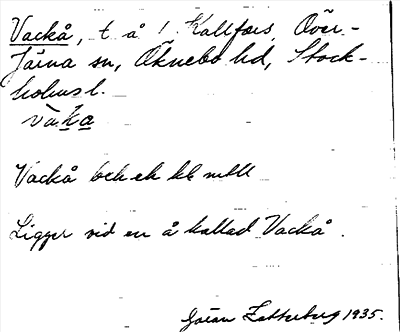 Vackå, t. å 1 Kallfors, Över-
Järna sn, Öknebo hd, Stock-
holms l.
vaka
Vackå
Ligger vid en å kallad Vackå.
Göran Zetterberg 1935.